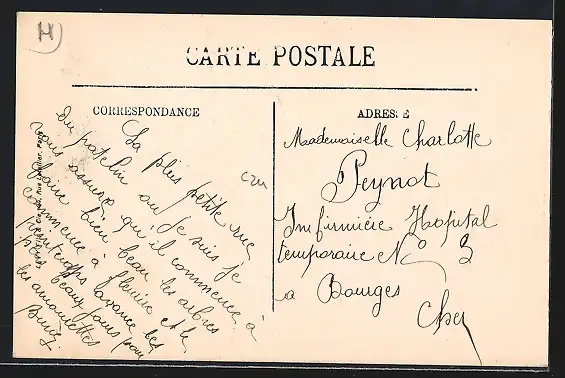 H
CARTE POSTALE
CORRESPONDANCE
ADRESSE
La plus petite rue
du patelin ou je suis je
vous assure qu'il commence à
faire bien beau les arbres
commence à fleurire et le
printemps avance les
plus beaux jours pour
les amourettes
Mademoiselle Charlotte
Peynot
Infirmière Hopital
temporaire No 3
a Bourges
Cher